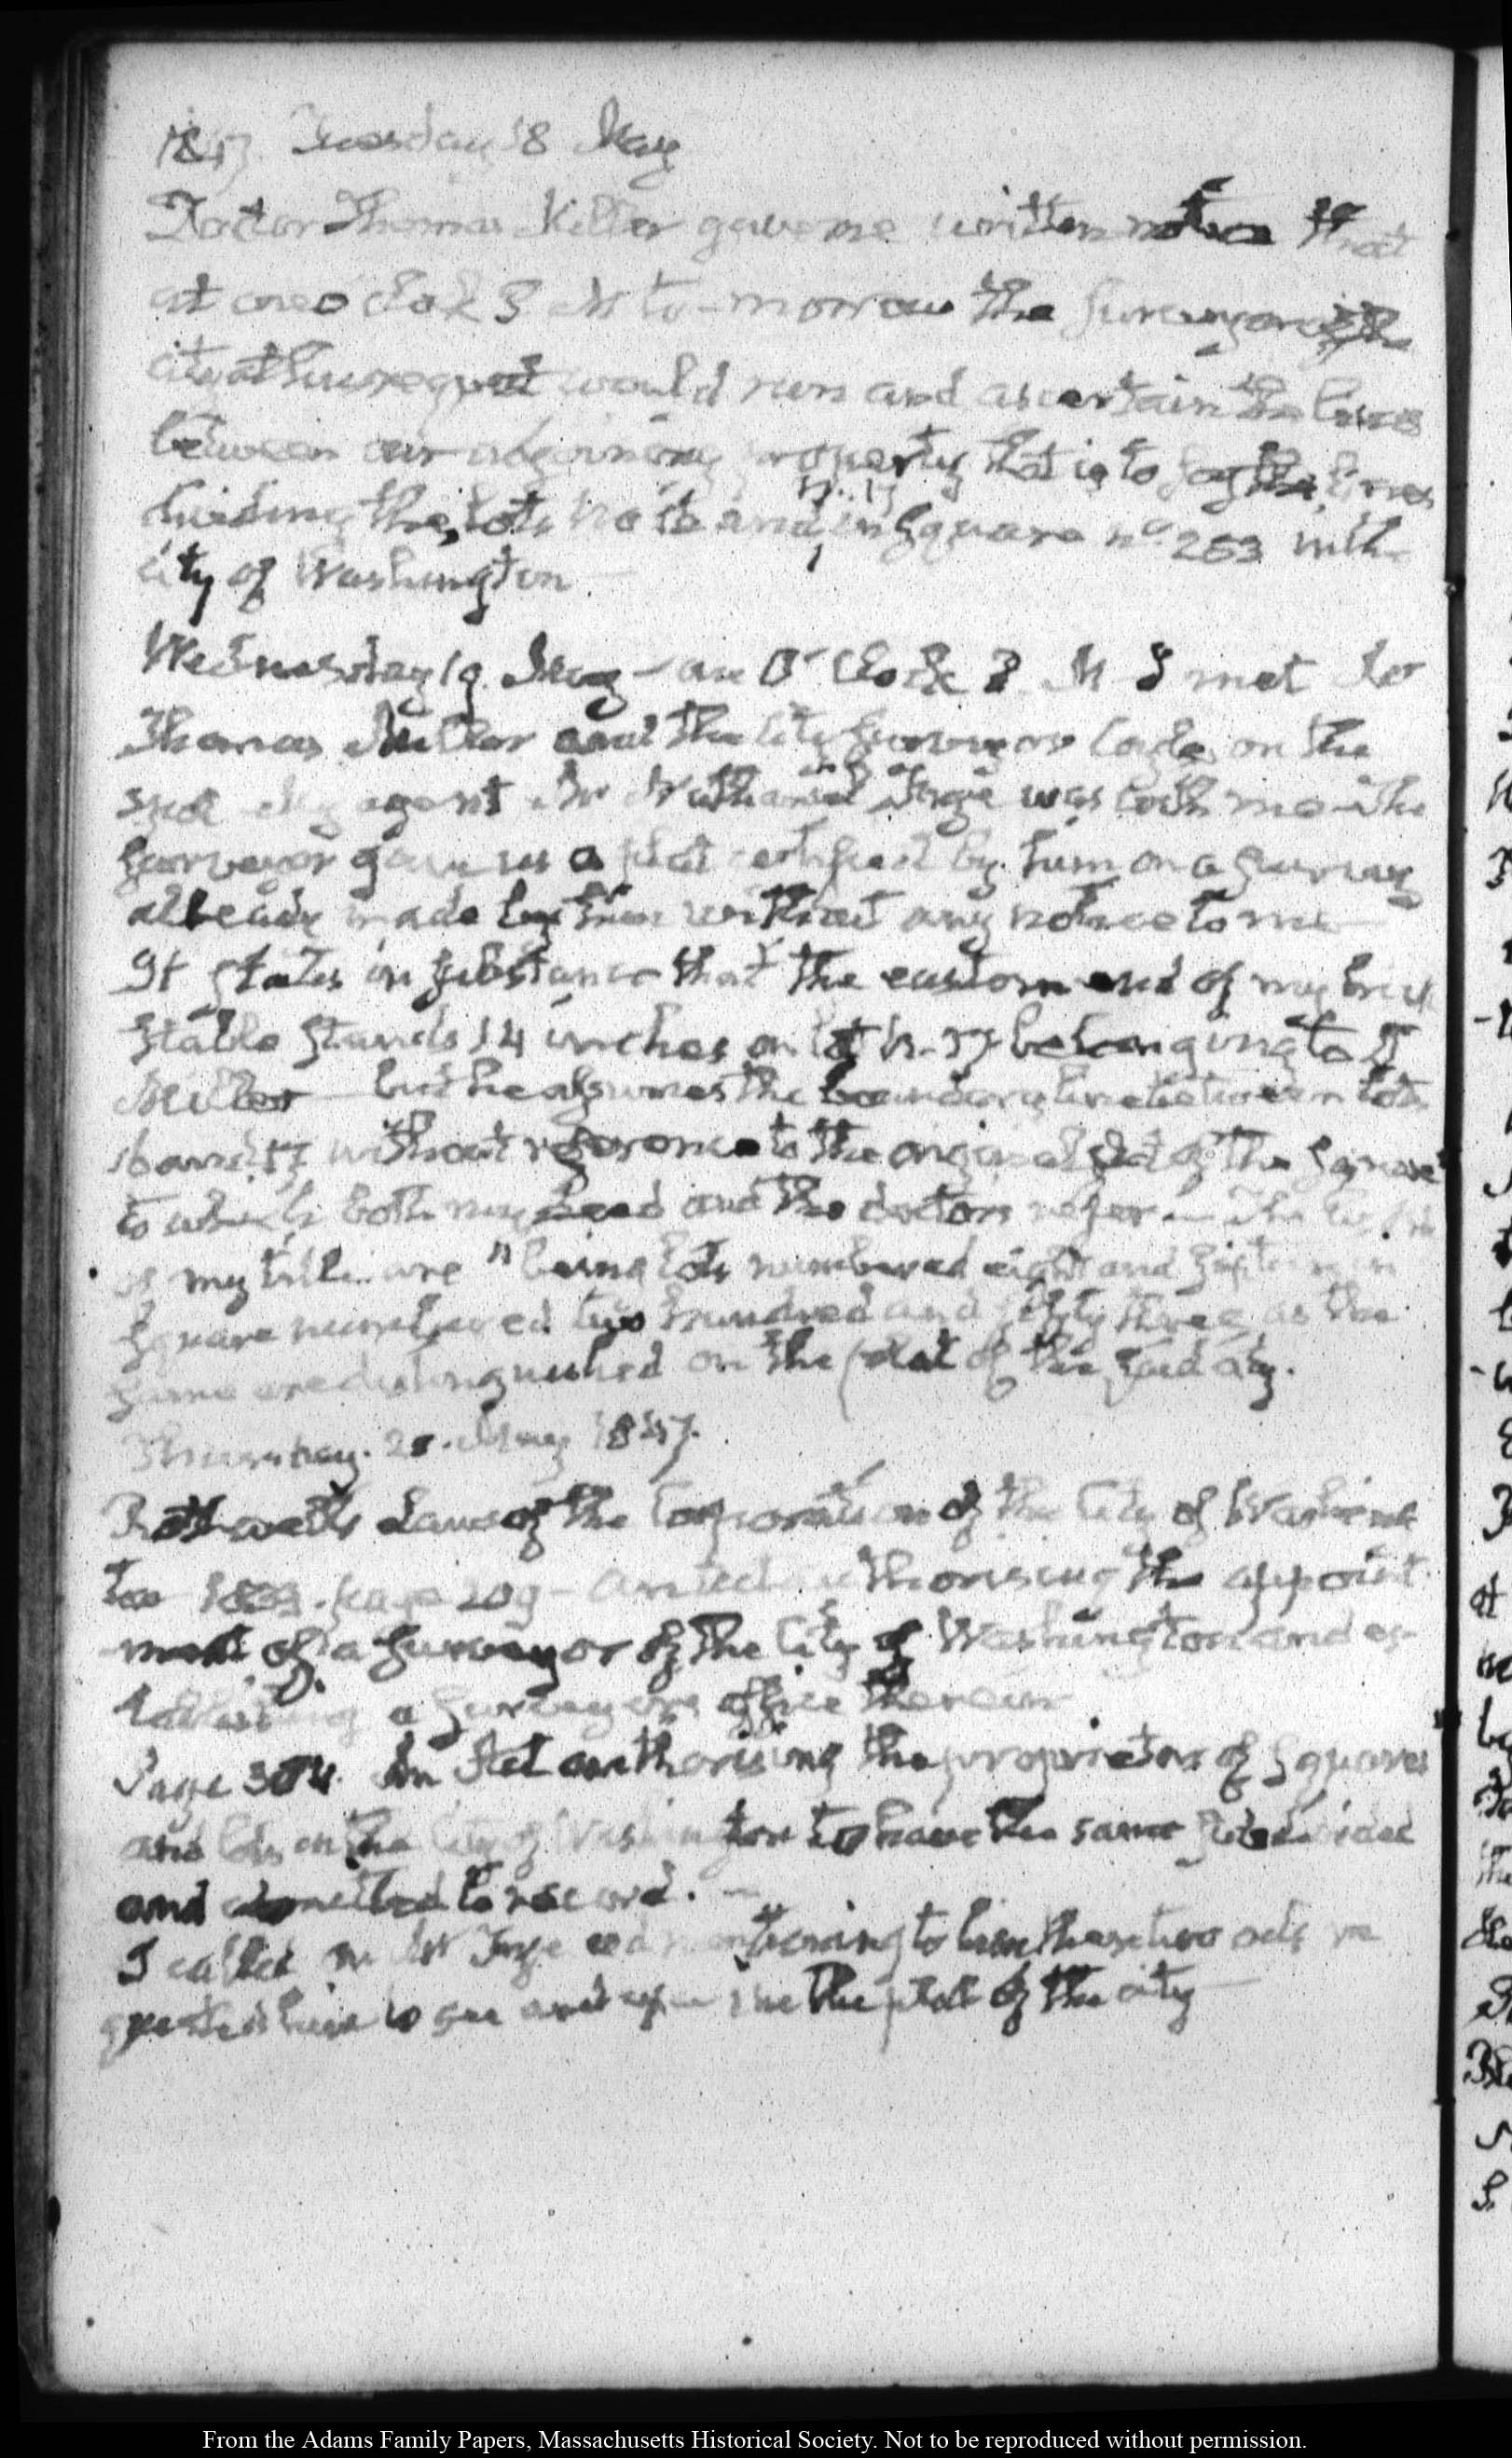 1847. Tuesday 18 May
Doctor Thomas Miller gave me written notice that
at one o'clock P M to-morrow the Surveyor of the
city at his request would run and ascertain the lines
between our adjoining property that is to say the lines
dividing the lots No 16 and N. 17 in Square no. 253 in the
city of Washington—
Wednesday 19. May— One O'Clock P. M I met Dr
Thomas Miller and the City Surveyor on the
spot My agent Mr Nathaniel Frye was with me—The
Surveyor gave us a plat certified by him on a survey
already made by him without any notice to me—
It states in substance that the eastern end of my brick
stable stands 14 inches on lot N. 17 belonging to Dr
Miller—but he assumes the boundary line between lots
16 and 17 without reference to the original plat of the Square
to which both my deed and the doctors refer—The
of my title are "being lots numbered eight and sixteen in
Square numbered two hundred and fifty three, as the
same are distinguished on the plat of the said city.
Thursday. 20. May 1847.
Rothwell's Laws of the Corporation of the City of Washing
ton 1833. page 209—An act authorising the appoint-
ment of a Surveyor of the City of Washington and es-
tablishing a Surveyors office therein
Page 304. An Act authorising the proprietors of Squares
and lots in the City of Washington to have the same subdivided
and admitted to record.—
I called on Mr Frye and mentioning to him these two acts re
quested him to see and the plat of the city—
From the Adams Family Papers, Massachusetts Historical Society. Not to be reproduced without permission.